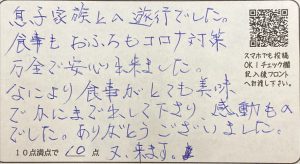 息子家族との旅行でした。
食事もおふろもコロナ対策
万全で安心出来ました。
なにより食事がとても美味
でかにまで出して下さり、感動もの
でした。ありがとうございました。
10点満点で 10 点 又、来ます。
スマホでも投稿
OK!チェック欄
記入後フロント
へお渡し下さい。